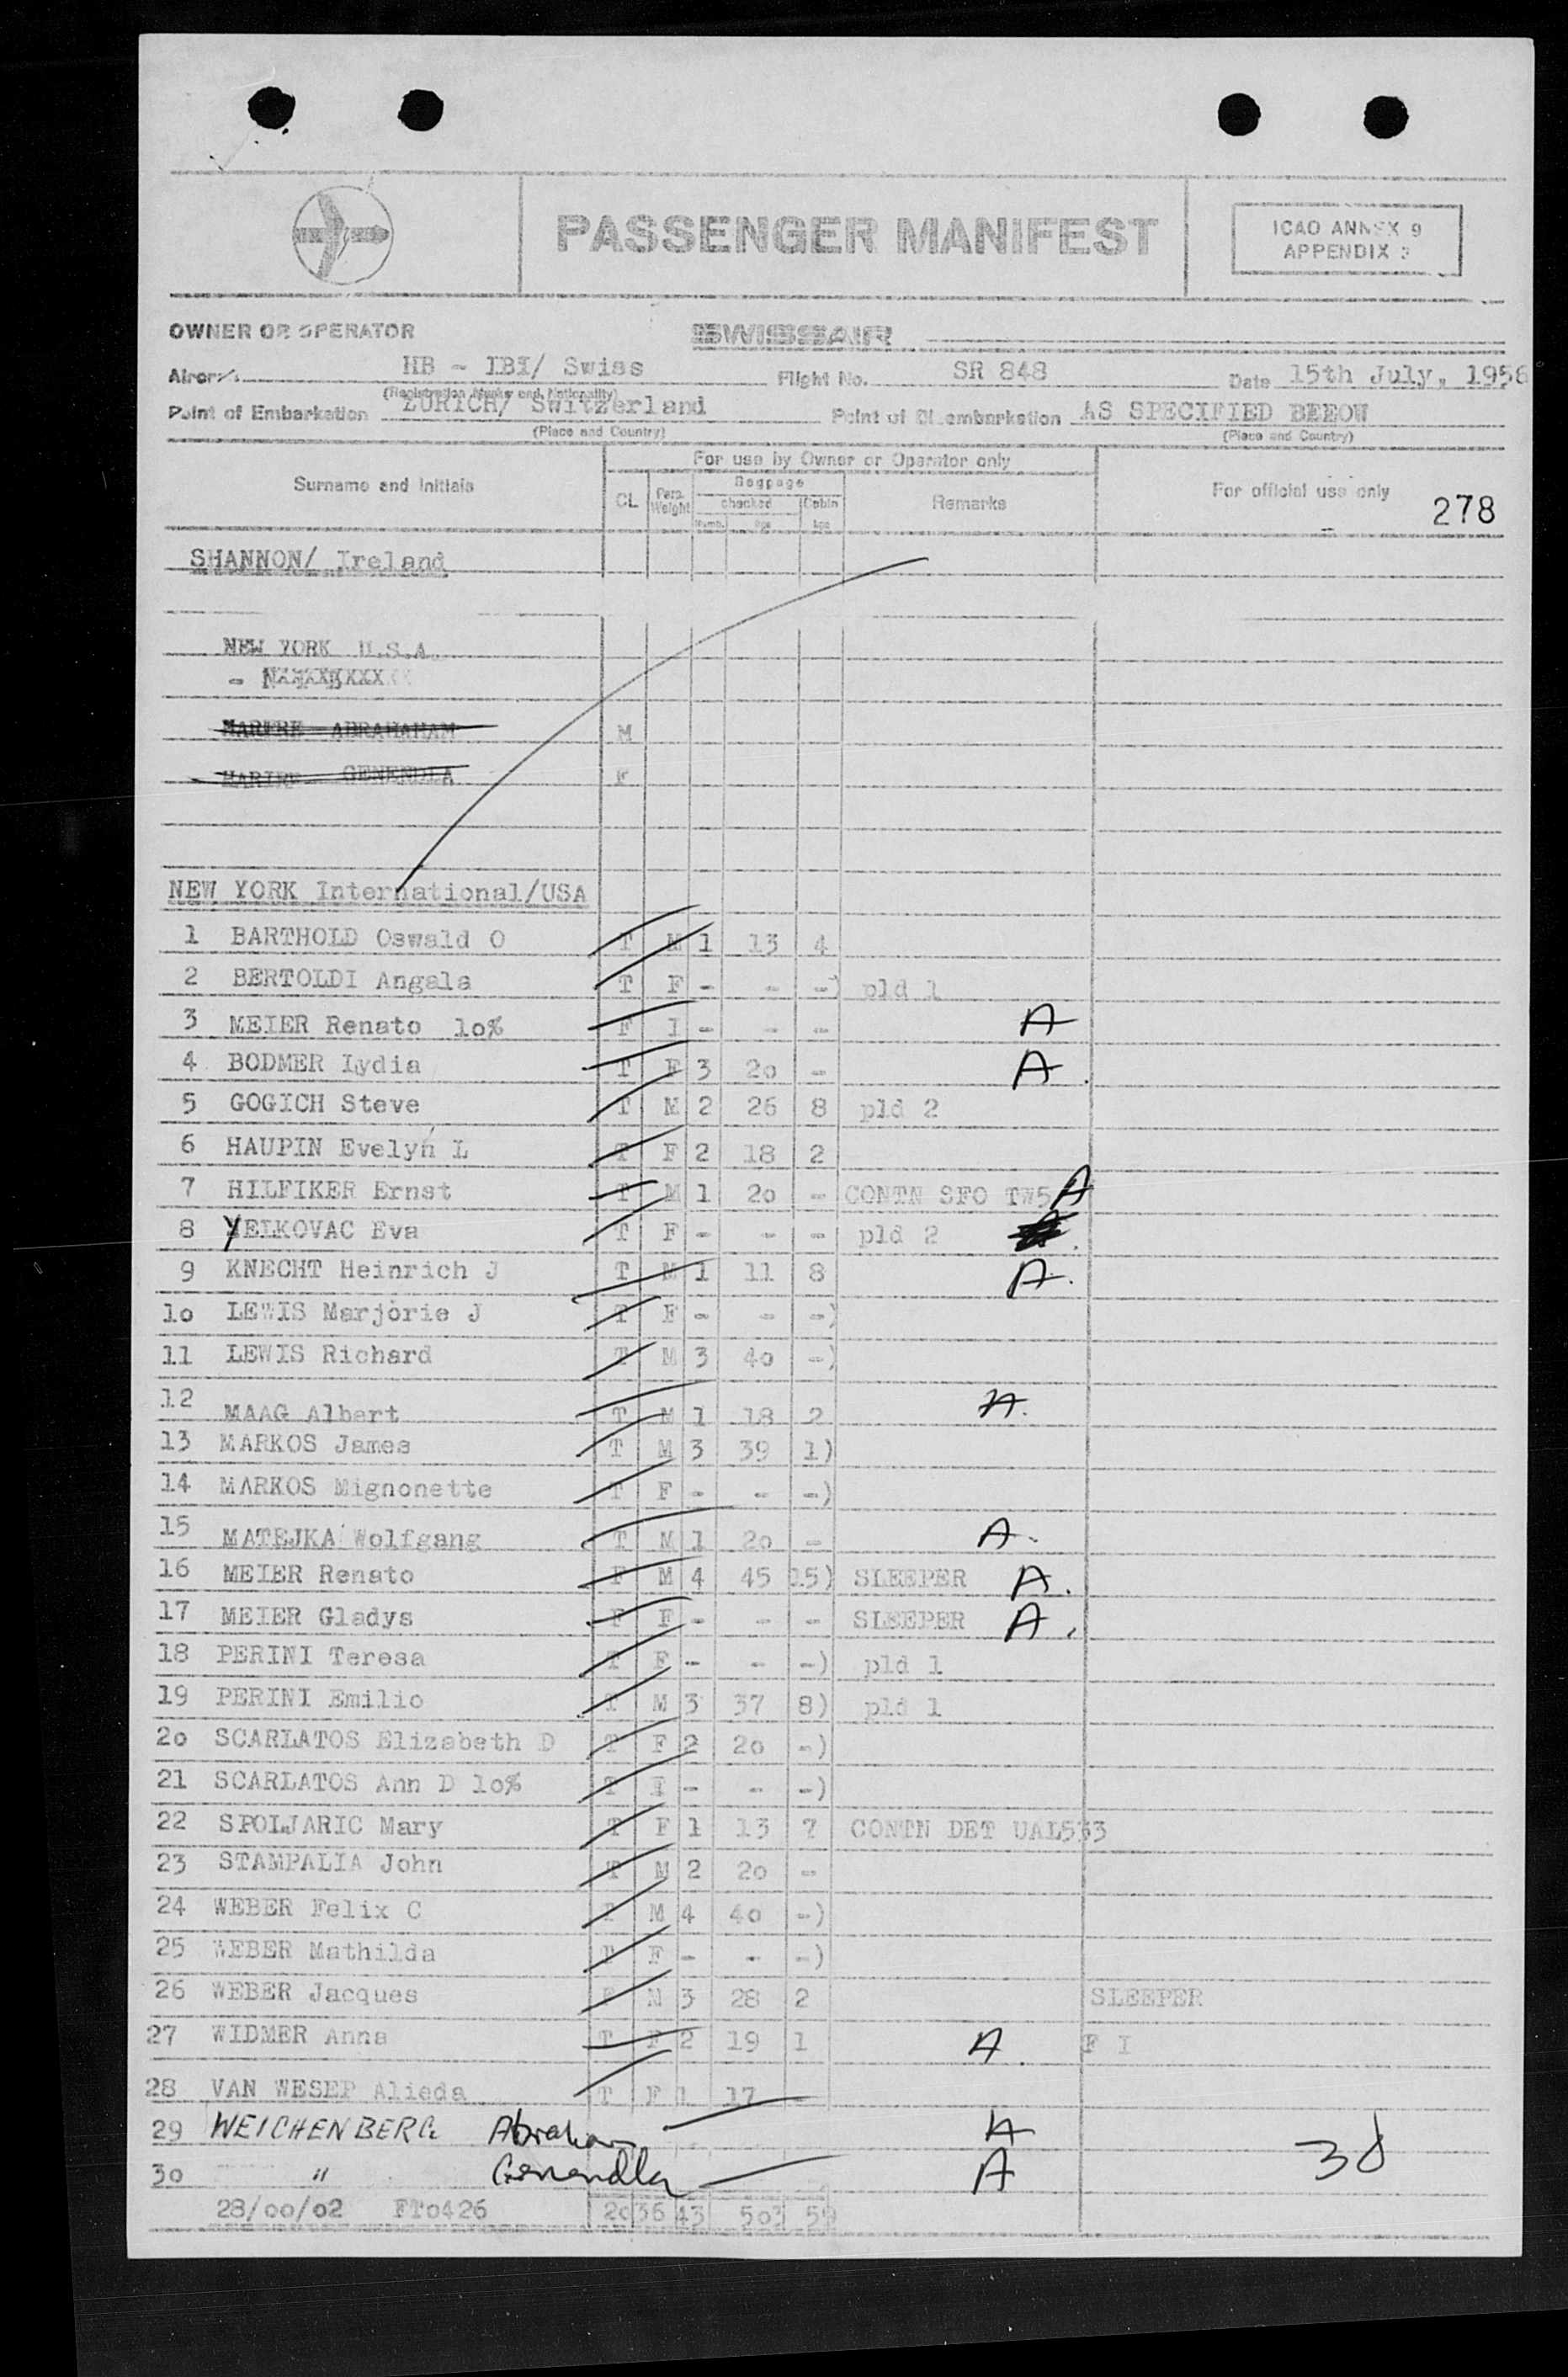 PASSENGER MANIFEST
ICAO ANNEX 9
APPENDIX 3
OWNER OR OPERATOR SWISSAIR
HB - IBI/ Swiss Flight No. SR 848 Date 15th July, 1958
(Registration Marks and Nationality)
Point of Embarkation ZURICH/ Switzerland Point of Disembarkation AS SPECIFIED BEEOW
(Place and Country) (Place and Country)
For use by Owner or Operator only
Surname and Initials CL Pers. Weight Baggage checked Cabin Numb. kgs kgs Remarks For official use only 278
SHANNON/ Ireland
NEW YORK U.S.A.
MARFRE ABRAHAHAM M
GENENDLA F
NEW YORK International/USA
1 BARTHOLD Oswald O T M 1 13 4
2 BERTOLDI Angala T F - - -) pld 1
3 MEIER Renato 10% F I - - - A
4 BODMER Lydia T F 3 20 - A
5 GOGICH Steve T M 2 26 8 pld 2
6 HAUPIN Evelyn L T F 2 18 2
7 HILFIKER Ernst T M 1 20 - CONTN SFO TW5 A
8 YELKOVAC Eva T F - - - pld 2
9 KNECHT Heinrich J T M 1 11 8 A.
10 LEWIS Marjorie J T F - - -)
11 LEWIS Richard T M 3 40 -)
12 MAAG Albert T M 1 18 2 A.
13 MARKOS James T M 3 39 1)
14 MARKOS Mignonette T F - - -)
15 MATEJKA Wolfgang T M 1 20 - A.
16 MEIER Renato F M 4 45 15) SLEEPER A.
17 MEIER Gladys F F - - - SLEEPER A.
18 PERINI Teresa T F - - -) pld 1
19 PERINI Emilio T M 3 37 8) pld 1
20 SCARLATOS Elizabeth D T F 2 20 -)
21 SCARLATOS Ann D 10% T I - - -)
22 SPOLJARIC Mary T F 1 13 7 CONTN DET UAL533
23 STAMPALIA John T M 2 20 -
24 WEBER Felix C T M 4 40 -)
25 WEBER Mathilda T F - - -)
26 WEBER Jacques F M 3 28 2 SLEEPER
27 WIDMER Anna T F 2 19 1 A. F I
28 VAN WESEP Alieda T F 1 17 -
29 WEICHENBERG Abraham A
30 " Genendla A 30
28/00/02 FT0426 2036 43 503 59